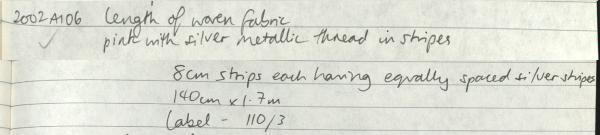 2002A106 length of woven fabric
pink with silver metallic thread in stripes
8cm strips each having equally spaced silver stripes
140cm x 1.7m
Label - 110/3